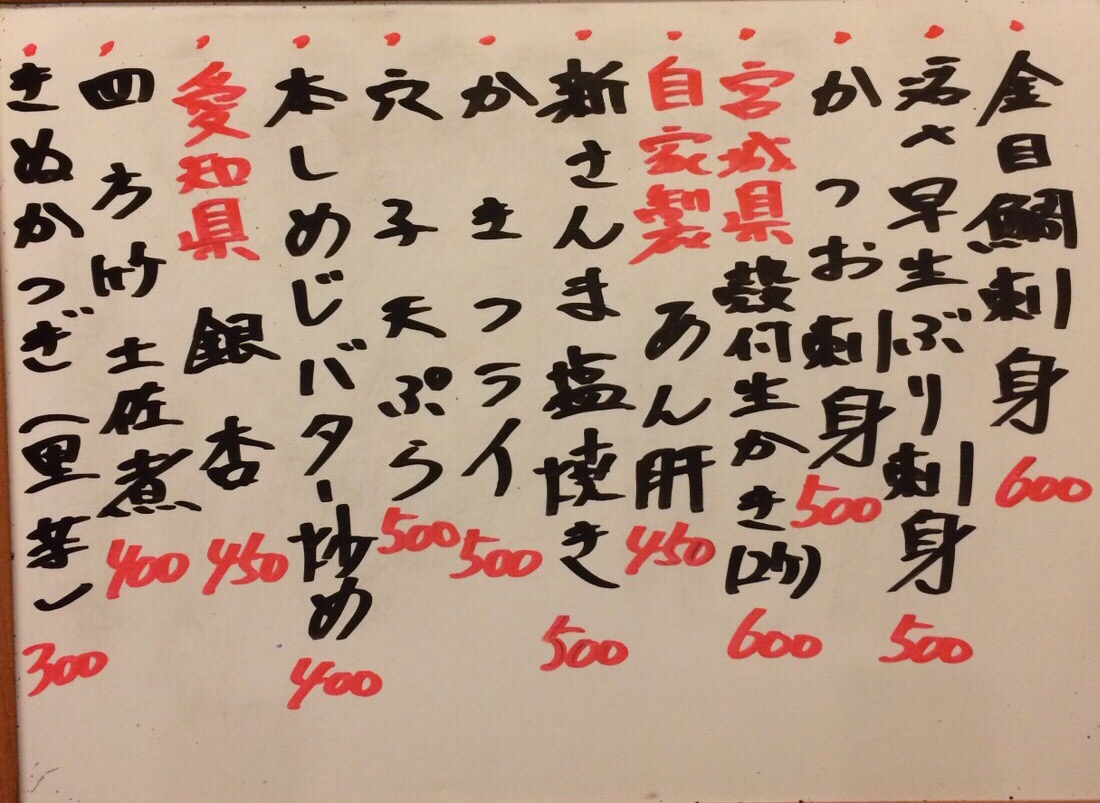 金目鯛刺身 600
活〆早生ぶり刺身 500
かつお刺身 500
宮城県殻付生かき(2ケ) 600
自家製あん肝 450
新さんま塩焼き 500
かきフライ 500
穴子天ぷら 500
本しめじバター炒め 400
愛知県銀杏 450
四方竹土佐煮 400
きぬかつぎ(里芋) 300